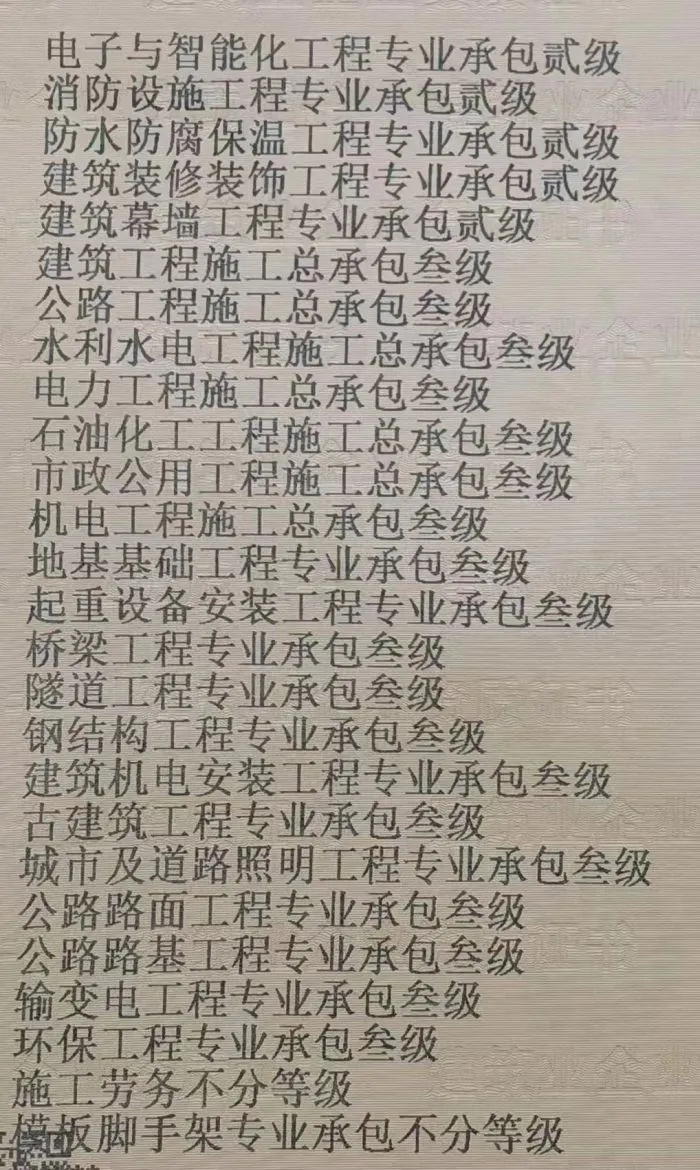 电子与智能化工程专业承包贰级
消防设施工程专业承包贰级
防水防腐保温工程专业承包贰级
建筑装修装饰工程专业承包贰级
建筑幕墙工程专业承包贰级
建筑工程施工总承包叁级
公路工程施工总承包叁级
水利水电工程施工总承包叁级
电力工程施工总承包叁级
石油化工工程施工总承包叁级
市政公用工程施工总承包叁级
机电工程施工总承包叁级
地基基础工程专业承包叁级
起重设备安装工程专业承包叁级
桥梁工程专业承包叁级
隧道工程专业承包叁级
钢结构工程专业承包叁级
建筑机电安装工程专业承包叁级
古建筑工程专业承包叁级
城市及道路照明工程专业承包叁级
公路路面工程专业承包叁级
公路路基工程专业承包叁级
输变电工程专业承包叁级
环保工程专业承包叁级
施工劳务不分等级
模板脚手架专业承包不分等级